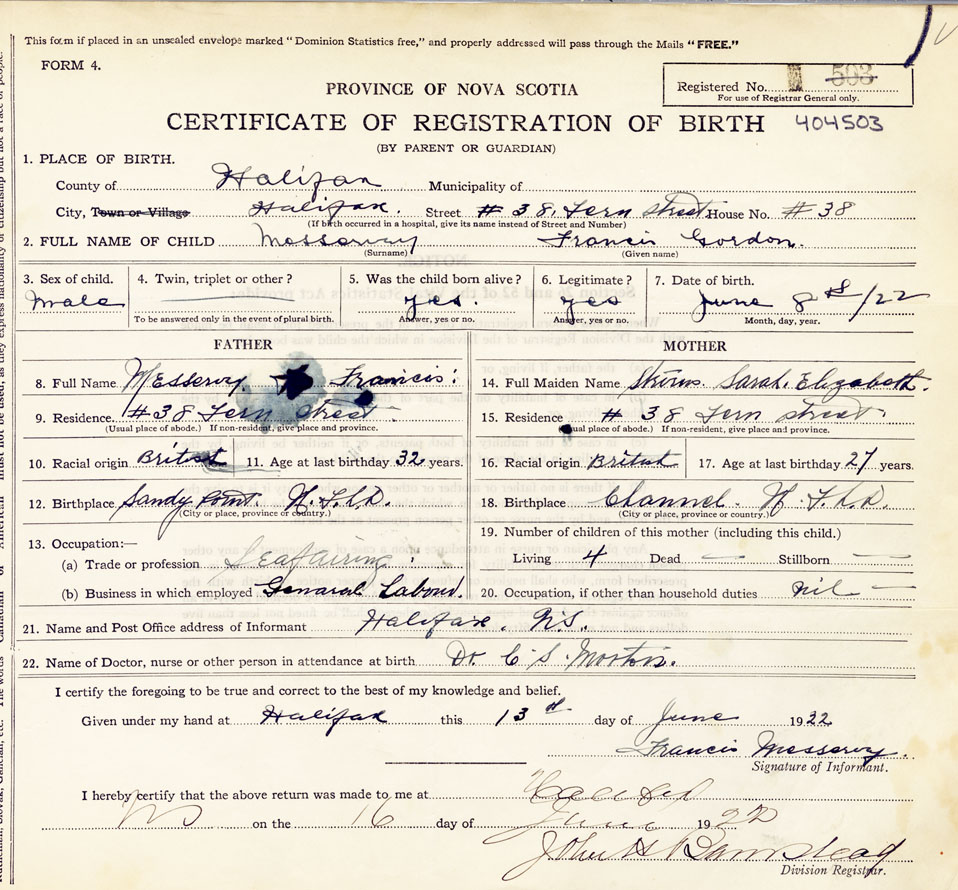 This form if placed in an unsealed envelope marked "Dominion Statistics free," and properly addressed will pass through the Mails "FREE."
FORM 4.
Registered No. 503
For use of Registrar General only.
PROVINCE OF NOVA SCOTIA
CERTIFICATE OF REGISTRATION OF BIRTH 404503
(BY PARENT OR GUARDIAN)
1. PLACE OF BIRTH.
County of Halifax Municipality of
City, Town or Village Halifax. Street # 38, Fern Street House No. # 38
(If birth occurred in a hospital, give its name instead of Street and Number)
2. FULL NAME OF CHILD Messervy Francis Gordon.
(Surname) (Given name)
3. Sex of child. 4. Twin, triplet or other? 5. Was the child born alive? 6. Legitimate? 7. Date of birth.
Male yes yes June 8th/22
To be answered only in the event of plural birth. Answer, yes or no. Answer, yes or no. Month, day, year.
FATHER MOTHER
8. Full Name Messervy Francis. 14. Full Maiden Name Sarah. Elizabeth.
9. Residence #38 Fern Street 15. Residence # 38 Fern street
(Usual place of abode.) If non-resident, give place and province. (Usual place of abode.) If non-resident, give place and province.
10. Racial origin British 11. Age at last birthday 32 years. 16. Racial origin British 17. Age at last birthday 27 years.
12. Birthplace Sandy Point. N. F. L. D. 18. Birthplace Channel. N. F. L. D.
(City or place, province or country.) (City or place, province or country.)
13. Occupation:— 19. Number of children of this mother (including this child.)
(a) Trade or profession Seafairing Living 4 Dead — Stillborn —
(b) Business in which employed General Labour. 20. Occupation, if other than household duties nil —
21. Name and Post Office address of Informant Halifax. N.S.
22. Name of Doctor, nurse or other person in attendance at birth Dr. C. S. Morton.
I certify the foregoing to be true and correct to the best of my knowledge and belief.
Given under my hand at Halifax this 13th day of June 1922
Francis Messervy.
Signature of Informant.
I hereby certify that the above return was made to me at Halifax
NS on the 16 day of June 1922
John H Barnstead
Division Registrar.